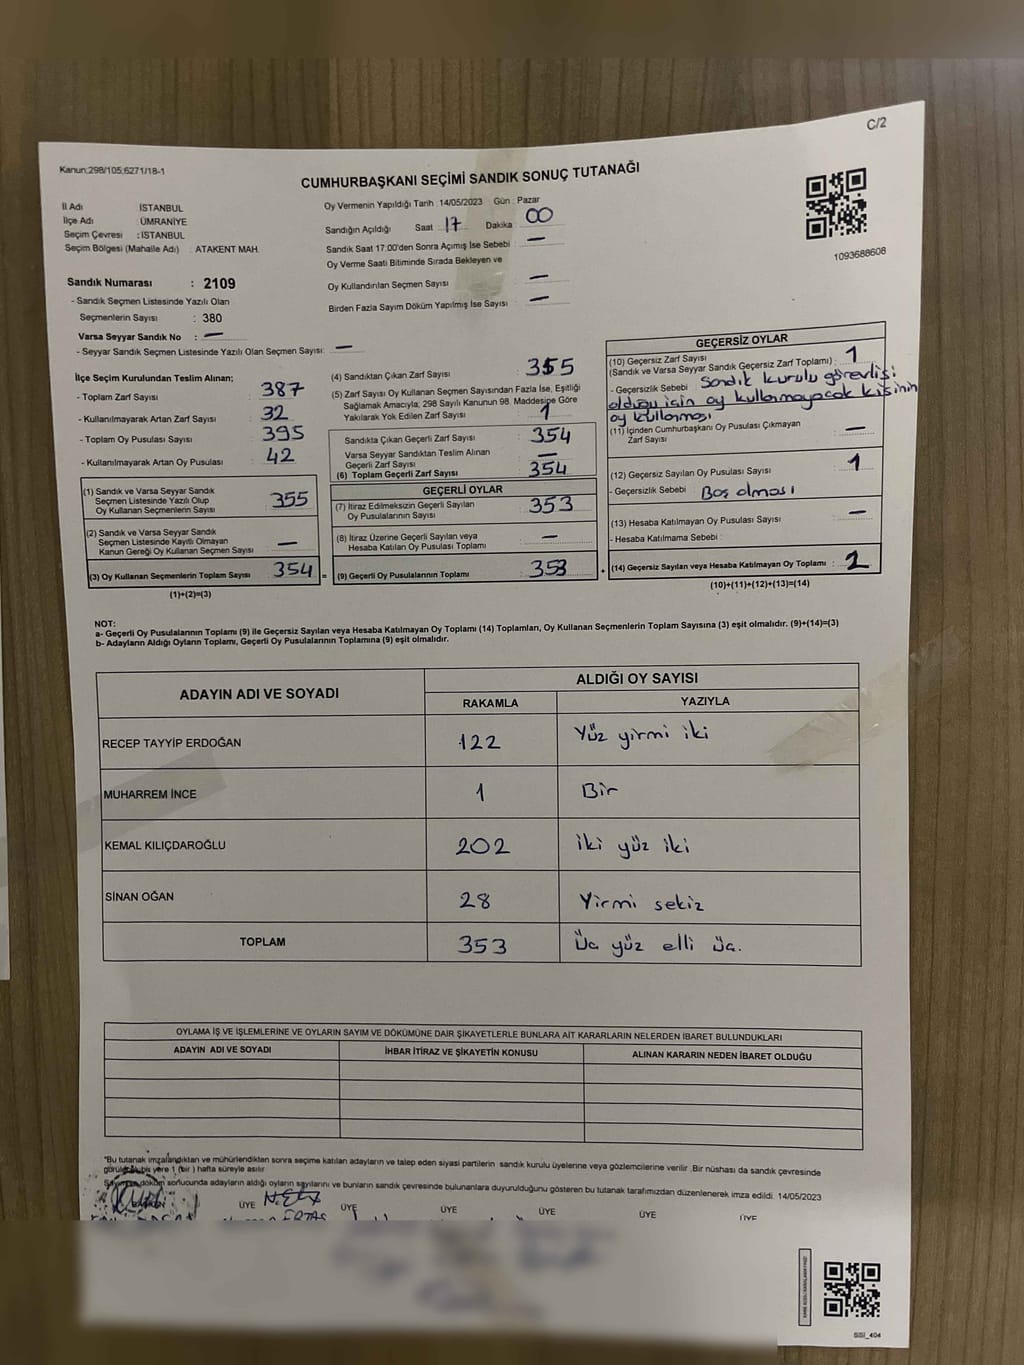 C/2
Kanun;298/105;6271/18-1
CUMHURBAŞKANI SEÇİMİ SANDIK SONUÇ TUTANAĞI
İl Adı : İSTANBUL
İlçe Adı : ÜMRANİYE
Seçim Çevresi : İSTANBUL
Seçim Bölgesi (Mahalle Adı) : ATAKENT MAH.
Oy Vermenin Yapıldığı Tarih : 14/05/2023 Gün : Pazar
Sandığın Açıldığı Saat : 17 Dakika : 00
Sandık Saat 17:00'den Sonra Açımış İse Sebebi : —
Oy Verme Saati Bitiminde Sırada Bekleyen ve
Oy Kullandırılan Seçmen Sayısı : —
Birden Fazla Sayım Döküm Yapılmış İse Sayısı : —
1093688608
Sandık Numarası : 2109
- Sandık Seçmen Listesinde Yazılı Olan
Seçmenlerin Sayısı : 380
Varsa Seyyar Sandık No : —
- Seyyar Sandık Seçmen Listesinde Yazılı Olan Seçmen Sayısı: —
İlçe Seçim Kurulundan Teslim Alınan;
- Toplam Zarf Sayısı : 387
- Kullanılmayarak Artan Zarf Sayısı : 32
- Toplam Oy Pusulası Sayısı : 395
- Kullanılmayarak Artan Oy Pusulası : 42
(1) Sandık ve Varsa Seyyar Sandık
Seçmen Listesinde Yazılı Olup
Oy Kullanan Seçmenlerin Sayısı : 355
(2) Sandık ve Varsa Seyyar Sandık
Seçmen Listesinde Kayıtlı Olmayan
Kanun Gereği Oy Kullanan Seçmen Sayısı : —
(3) Oy Kullanan Seçmenlerin Toplam Sayısı : 354
(1)+(2)=(3)
(4) Sandıktan Çıkan Zarf Sayısı : 355
(5) Zarf Sayısı Oy Kullanan Seçmen Sayısından Fazla İse, Eşitliği
Sağlamak Amacıyla, 298 Sayılı Kanunun 98. Maddesine Göre
Yakılarak Yok Edilen Zarf Sayısı : 1
Sandıkta Çıkan Geçerli Zarf Sayısı : 354
Varsa Seyyar Sandıktan Teslim Alınan
Geçerli Zarf Sayısı : —
(6) Toplam Geçerli Zarf Sayısı : 354
GEÇERLİ OYLAR
(7) İtiraz Edilmeksizin Geçerli Sayılan
Oy Pusulalarının Sayısı : 353
(8) İtiraz Üzerine Geçerli Sayılan veya
Hesaba Katılan Oy Pusulası Toplamı : —
= (9) Geçerli Oy Pusulalarının Toplamı : 353
GEÇERSİZ OYLAR
(10) Geçersiz Zarf Sayısı
(Sandık ve Varsa Seyyar Sandık Geçersiz Zarf Toplamı) : 1
- Geçersizlik Sebebi : Sandık kurulu görevlisi
olduğu için oy kullanmayacak kişinin
oy kullanması
(11) İçinden Cumhurbaşkanı Oy Pusulası Çıkmayan
Zarf Sayısı : —
(12) Geçersiz Sayılan Oy Pusulası Sayısı : 1
- Geçersizlik Sebebi : Boş olması
(13) Hesaba Katılmayan Oy Pusulası Sayısı : —
- Hesaba Katılmama Sebebi :
+ (14) Geçersiz Sayılan veya Hesaba Katılmayan Oy Toplamı :
(10)+(11)+(12)+(13)=(14)
NOT:
a- Geçerli Oy Pusulalarının Toplamı (9) ile Geçersiz Sayılan veya Hesaba Katılmayan Oy Toplamı (14) Toplamları, Oy Kullanan Seçmenlerin Toplam Sayısına (3) eşit olmalıdır. (9)+(14)=(3)
b- Adayların Aldığı Oyların Toplamı, Geçerli Oy Pusulalarının Toplamına (9) eşit olmalıdır.
ADAYIN ADI VE SOYADI ALDIĞI OY SAYISI
RAKAMLA YAZIYLA
RECEP TAYYİP ERDOĞAN 122 Yüz yirmi iki
MUHARREM İNCE 1 Bir
KEMAL KILIÇDAROĞLU 202 iki yüz iki
SİNAN OĞAN 28 Yirmi sekiz
TOPLAM 353 Üç yüz elli üç.
OYLAMA İŞ VE İŞLEMLERİNE VE OYLARIN SAYIM VE DÖKÜMÜNE DAİR ŞİKAYETLERLE BUNLARA AİT KARARLARIN NELERDEN İBARET BULUNDUKLARI
ADAYIN ADI VE SOYADI İHBAR İTİRAZ VE ŞİKAYETİN KONUSU ALINAN KARARIN NEDEN İBARET OLDUĞU
*Bu tutanak imzalandıktan ve mühürlendikten sonra seçime katılan adayların ve talep eden siyasi partilerin sandık kurulu üyelerine veya gözlemcilerine verilir. Bir nüshası da sandık çevresinde
bir yere 1 (bir) hafta süreyle asılır.
döküm sonucunda adayların aldığı oyların sayılarını ve bunların sandık çevresinde bulunanlara duyurulduğunu gösteren bu tutanak tarafımızdan düzenlenerek imza edildi. 14/05/2023
ÜYE ÜYE ÜYE ÜYE ÜYE ÜYE
SSİ_404